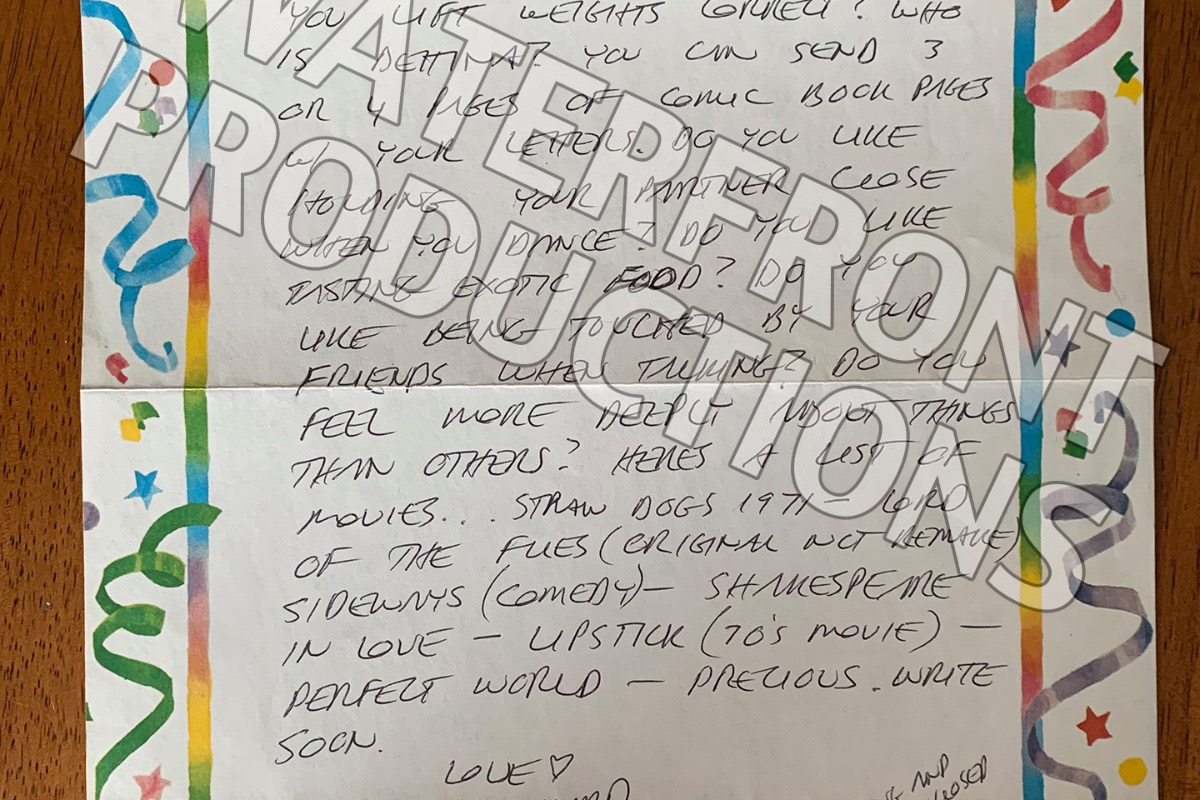 YOU LIFT WEIGHTS CORRECT? WHO
IS BETTINA? YOU CAN SEND 3
OR 4 PAGES OF COMIC BOOK PAGES
W/ YOUR LETTERS. DO YOU LIKE
HOLDING YOUR PARTNER CLOSE
WHEN YOU DANCE? DO YOU LIKE
TASTING EXOTIC FOOD? DO YOU
LIKE BEING TOUCHED BY YOUR
FRIENDS WHEN TALKING? DO YOU
FEEL MORE DEEPLY ABOUT THINGS
THAN OTHERS? HERES A LIST OF
MOVIES... STRAW DOGS 1971 — LORD
OF THE FLIES (ORIGINAL NOT REMAKE)
SIDEWAYS (COMEDY) — SHAKESPEARE
IN LOVE — LIPSTICK (70'S MOVIE) —
PERFECT WORLD — PRECIOUS. WRITE
SOON.
LOVE ♡
AND
WATERFRONT
PRODUCTIONS